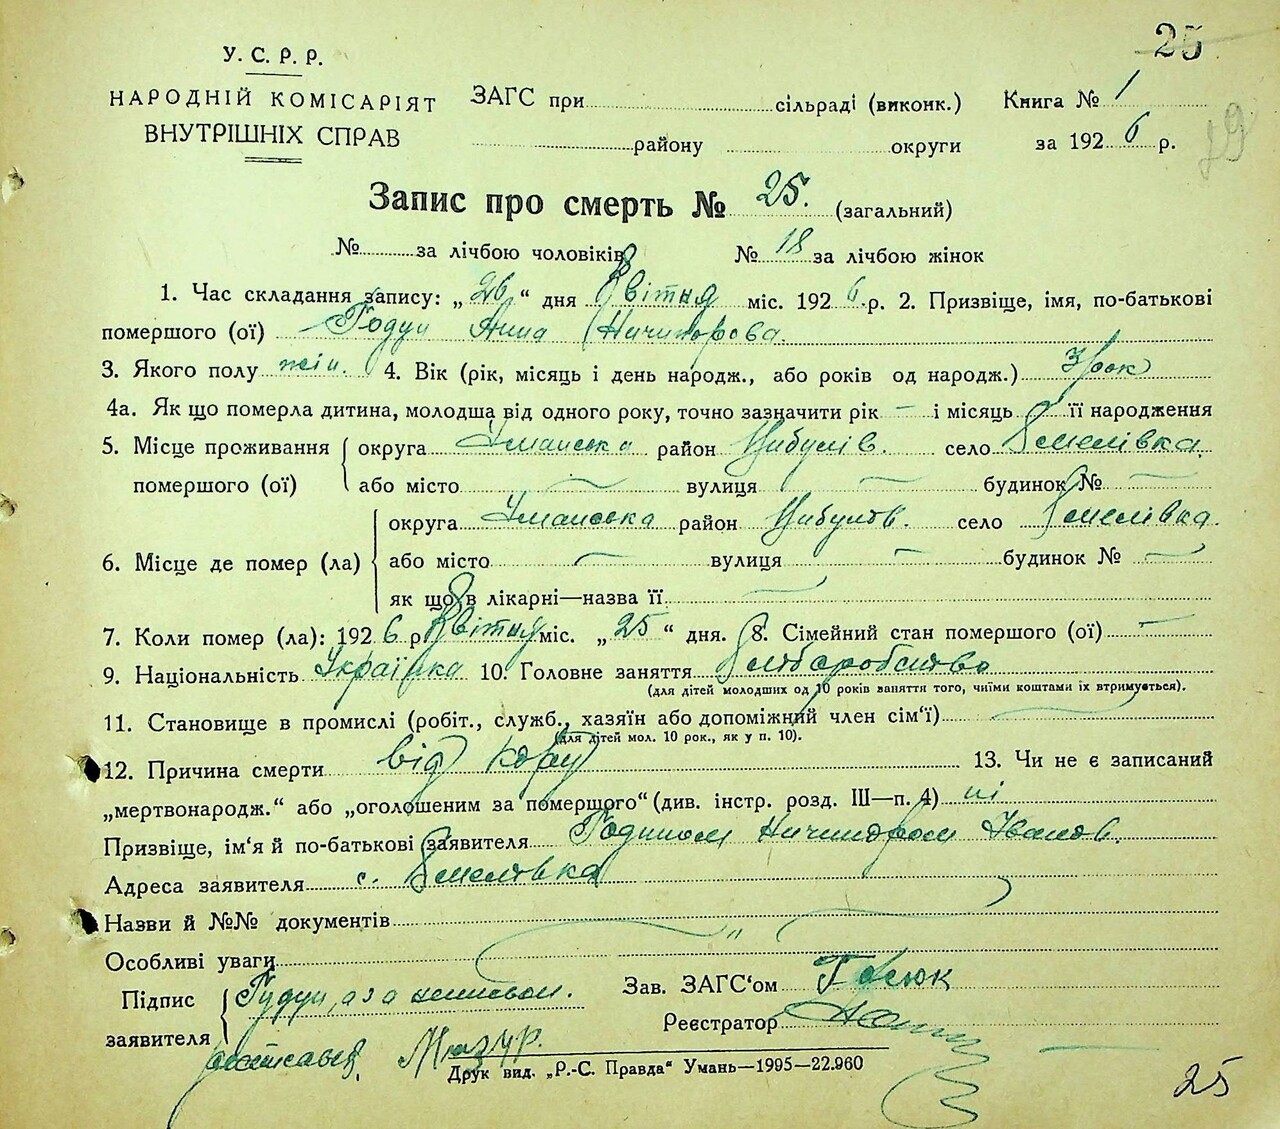 25
У. С. Р. Р.
НАРОДНІЙ КОМІСАРІЯТ
ВНУТРІШНІХ СПРАВ
ЗАГС при сільраді (виконк.)
району округи
Книга № 1
за 1926 р.
29
Запис про смерть № 25. (загальний)
№ за лічбою чоловіків № 18 за лічбою жінок
1. Час складання запису: „26“ дня Квітня міс. 1926 р. 2. Призвіще, імя, по-батькові
помершого (ої) Годун Анна Ничипорова.
3. Якого полу жін. 4. Вік (рік, місяць і день народж., або років од народж.) 3 рок
4а. Як що померла дитина, молодша від одного року, точно зазначити рік — і місяць її народження
5. Місце проживання округа Уманська район Цибулів. село Шмелівка.
помершого (ої) або місто — вулиця — будинок № —
округа Уманська район Цибулов. село Шмелівка.
6. Місце де помер (ла) або місто — вулиця — будинок № —
як що в лікарні—назва її —
7. Коли помер (ла): 1926 р Квітня міс. „25“ дня. 8. Сімейний стан помершого (ої) —
9. Національність Українка 10. Головне заняття хліборобство
(для дітей молодших од 10 років заняття того, чиїми коштами їх втримується).
11. Становище в промислі (робіт., служб., хазяїн або допоміжний член сім‘ї)
(для дітей мол. 10 рок., як у п. 10).
12. Причина смерти від кору 13. Чи не є записаний
„мертвонародж.“ або „оголошеним за помершого“ (див. інстр. розд. III—п. 4) ні
Призвіще, ім‘я й по-батькові заявителя Годуном Ничипором Іванов.
Адреса заявителя с. Шмелівка
Назви й №№ документів „
Особливі уваги
Підпис Гудун, а за
заявителя Мазур.
Зав. ЗАГС‘ом
Реєстратор
Друк вид. „Р.-С. Правда“ Умань—1995—22.960
25